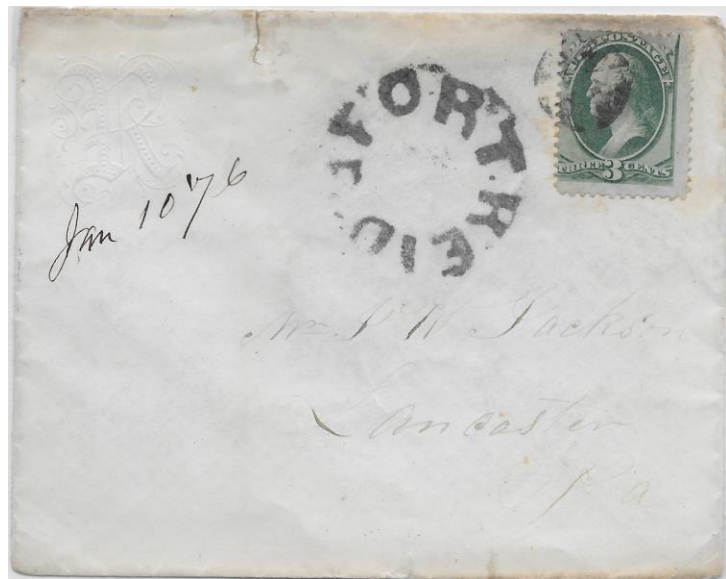 R
FORT REID
U.S. POSTAGE
THREE 3 CENTS
Jan 10 '76
Mr Jackson
Lancaster
Pa